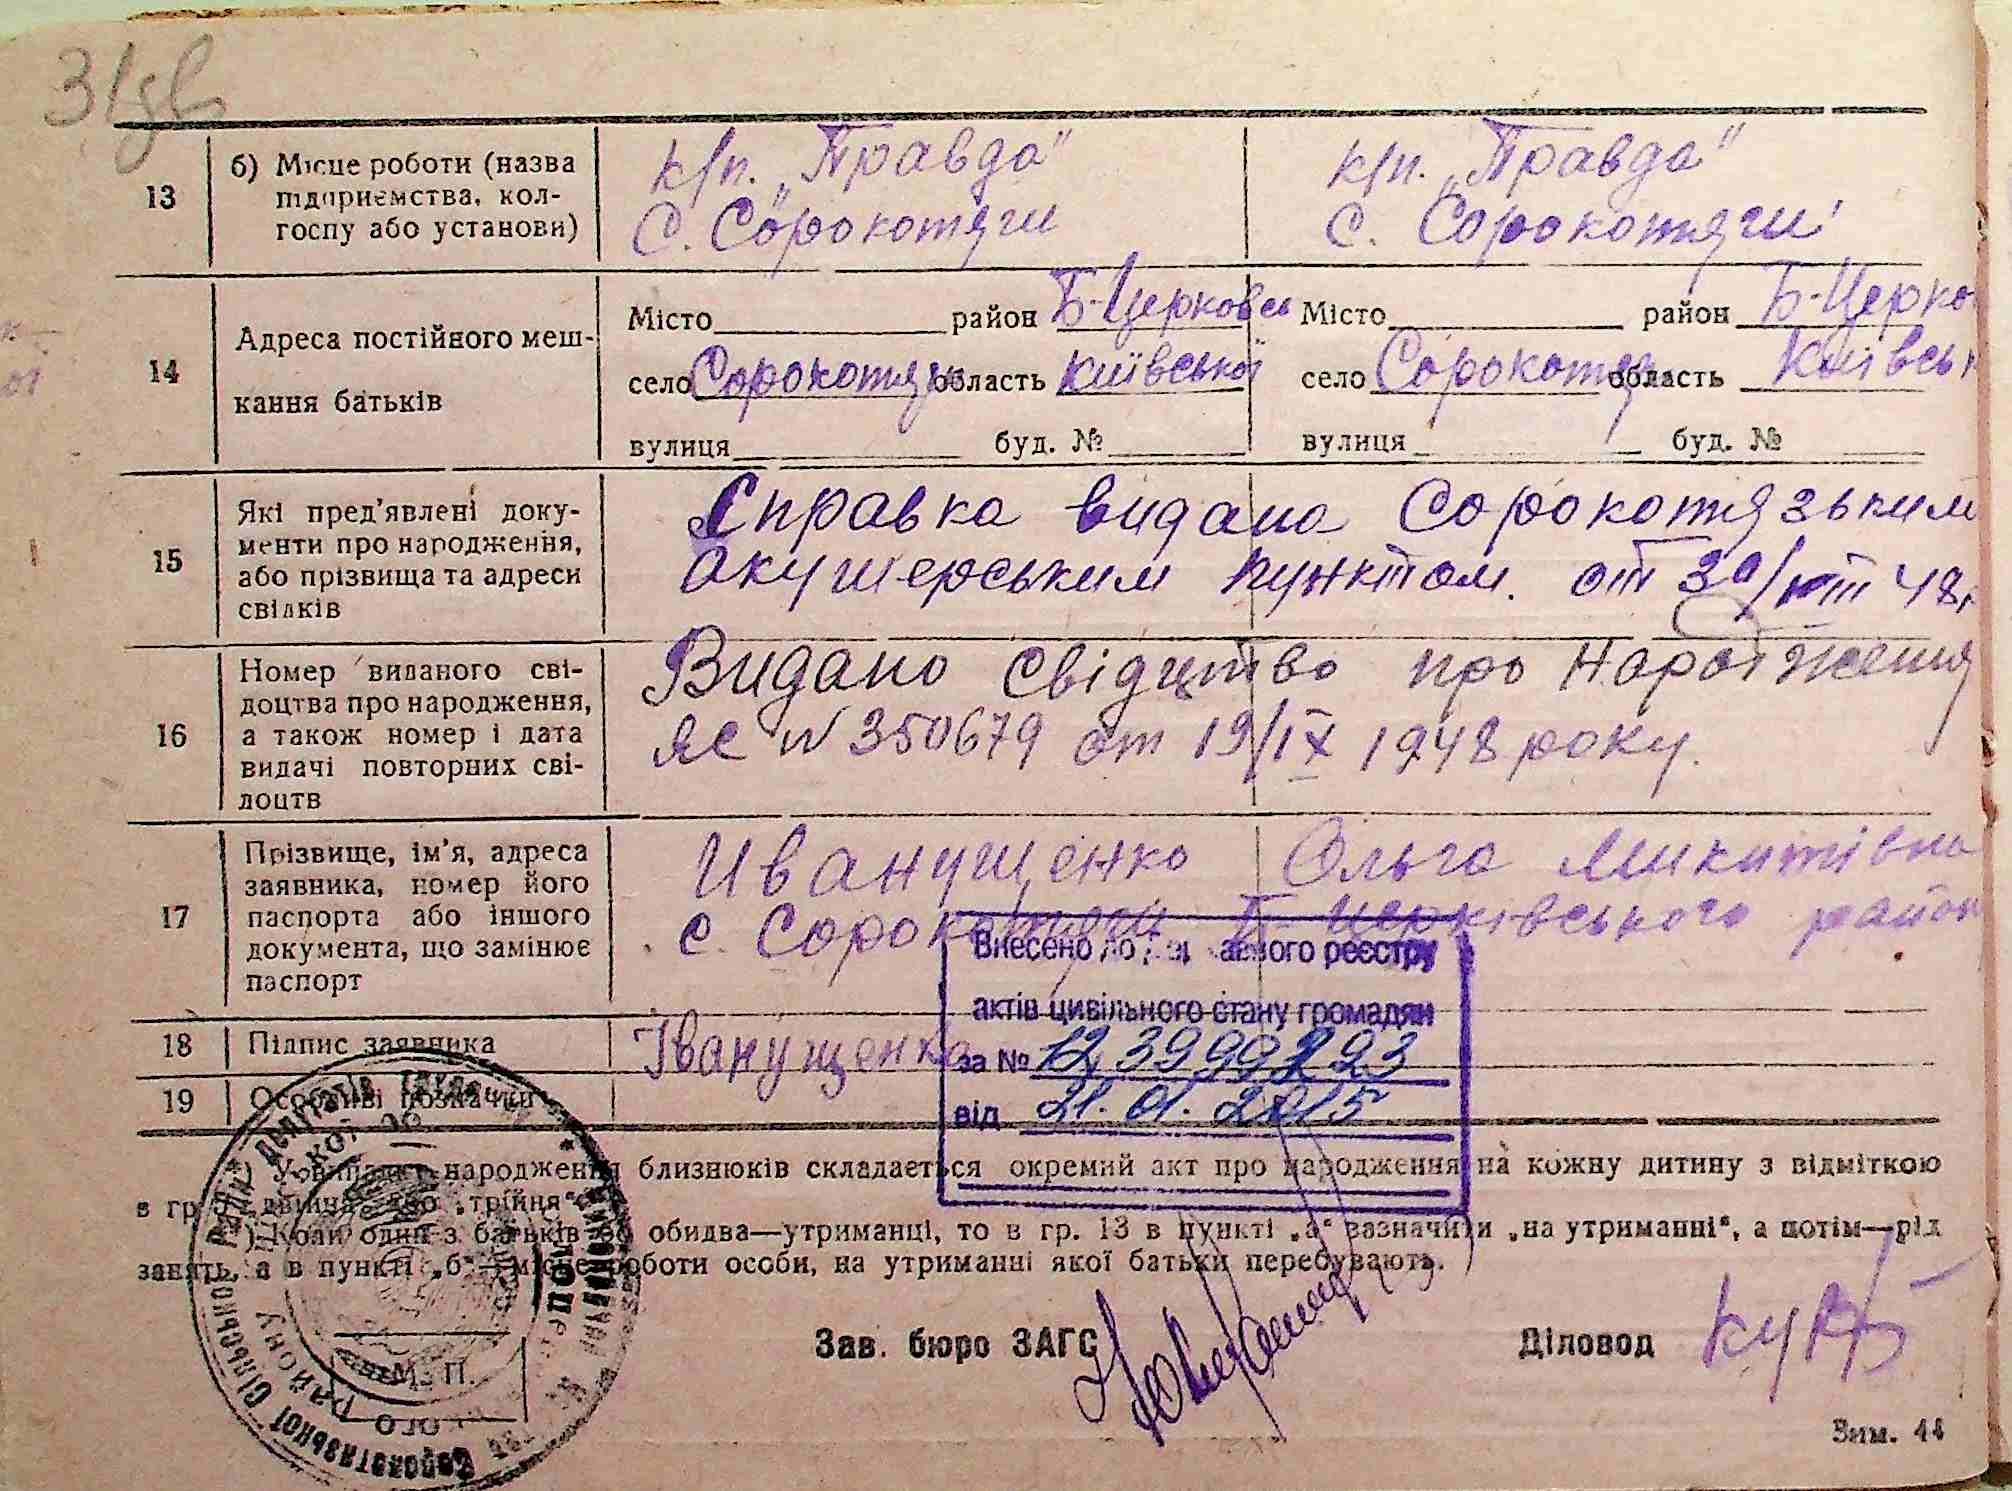 31зв
13 б) Місце роботи (назва підприємства, колгоспу або установи)
підприємства, кол-
госпу або установи)
к/п. „Правда"
с. Сорокотяги
к/п. „Правда"
с. Сорокотяги
14
Адреса постійного меш-
кання батьків
Місто район Б-Церковсь
село Сорокотяги область Київської
вулиця буд. №
Місто район Б-Церко
село Сорокотяги область Київськ
вулиця буд. №
15
Які пред'явлені доку-
менти про народження,
або прізвища та адреси
свідків
Справка видана Сорокотязьким
акушерським пунктом. от 48
16
Номер виданого сві-
доцтва про народження,
а також номер і дата
видачі повторних сві-
доцтв
Видано свідцтво про народження
ЯС № 350679 от 19/IX 1948 року.
17
Прізвище, ім'я, адреса
заявника, номер його
паспорта або іншого
документа, що замінює
паспорт
Иванущенко Ольга Микитівна
с. Сорокотяги Б-Церківського район
18 Підпис заявника
Іванущенко
19 Особливі позначки
Внесено до державного реєстру
актів цивільного стану громадян
за №
від 21.01.2015
У випадку народження близнюків складається окремий акт про народження на кожну дитину з відміткою
в гр. „двійня" або „трійня".
Коли один з батьків або обидва—утриманці, то в гр. 13 в пункті „а" зазначити „на утриманні", а потім—рід
занять, а в пункті „б"—місце роботи особи, на утриманні якої батьки перебувають.
Зав. бюро ЗАГС
Діловод
М. П.
Сорокотязької сільської Ради депутатів трудящих
району
Зим. 44